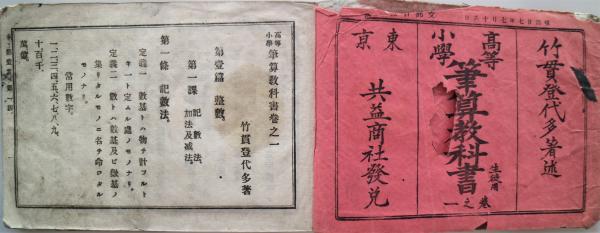 竹貫登代多著述
高等
小學
筆算教科書
生徒用
卷之一
東京
共益商社發兌
高等
小學
筆算教科書卷之一
竹貫登代多著
第壹篇 整數。
第一課 記數法。
加法及減法。
第一條 記數法。
定義一 數基トハ物ヲ計フルト
キ一ト定ムル處ノモノナリ。
定義二 數トハ數基及ビ數基ノ
集リタルモノニ名ヲ命ケタル
モノナリ。
常用數字。
一二三四五六七八九。
十百千。
萬億。